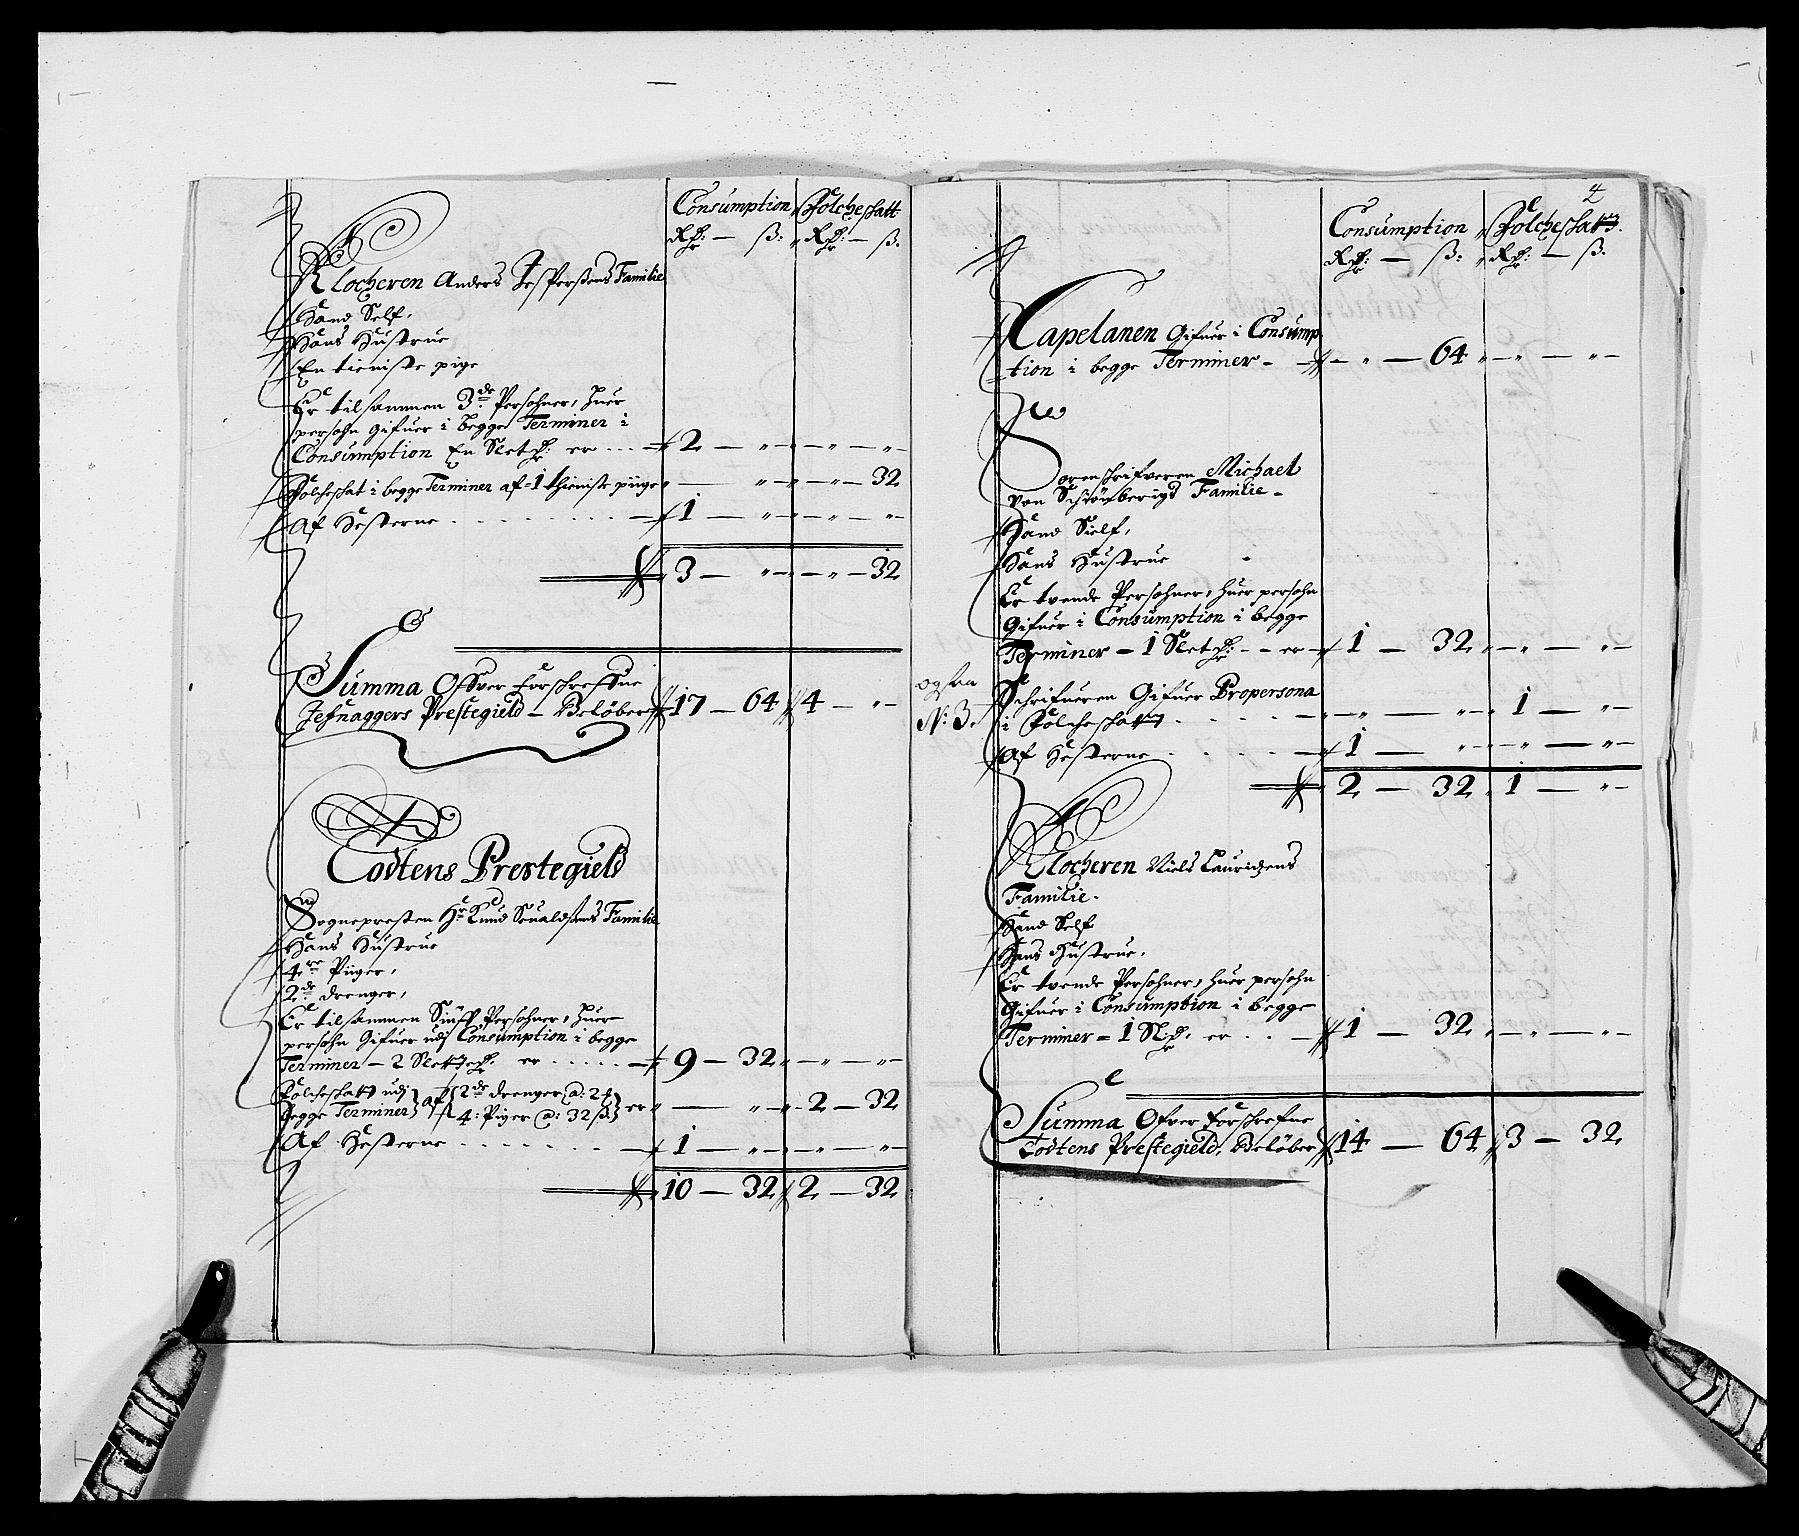 Consumption Folcheschatt
Rdr: — ß: Rdr: — ß:
Klocheren Anders Jespersøns Familie
Hand Self,
Hans Hustrue
En tieniste pige
Er tilsammen 3de Persohner, huer
persohn Gifuer i begge Terminer i
Consumption En Sletdr: er ... 2 — „ — „ — „
Folcheschat i begge Terminer af 1 thieniste piige „ — „ — „ — 32
Af Hesterne . . . . . . 1 — „ — „ — „
3 — „ — „ — 32
Summa Ofver forschrefne
Jefnaggers Prestegield — Beløber 17 — 64 4 — „
Todtens Prestegield
Sognepresten Hr Knud Seualdsøns Familie
Hans Hustrue
4re Piiger,
2de drenger,
Er tilsammen Siuff Persohner, huer
persohn Gifuer udj Consumption i begge
Terminer — 2 Slettedr: er . . . . . 9 — 32 „ — „ — „
Folcheschatt udj
begge Terminer af 2de drenger @: 2
4: Piger @: 32 ß er „ — „ 2 — 32
Af Hesterne . . . . . . 1 — „ — „ — „
10 — 32 2 — 32
4
Consumption Folcheschatt
Rdr: — ß: Rdr: — ß:
Capelanen Gifuer i Consump
tion i begge Terminer — „ — 64 „ — „ — „
Sorenschrifveren Michael
von Familie —
Hand Sielf,
Hans Hustrue
Er tvende Persohner, huer persohn
Gifuer i Consumption i begge
Terminer — 1 Sletdr: — er — 1 — 32 „ — „ — „
N: 3.
Schrifueren Gifuer Propersona
i Folcheschatt . . . . „ — „ 1 — „
Af Hesterne . . . . . 1 — „ — „ — „
2 — 32 1 — „
Klocheren Niels Lauridzens
Familie.
Hand Self
Hans Hustrue,
Er tvende Persohner, huer persohn
Gifuer i Consumption i begge
Terminer — 1 Sldr: er . . 1 — 32 „ — „ — „
Summa Ofver forschrefne
Todtens Prestegield, Beløber 14 — 64 3 — 32